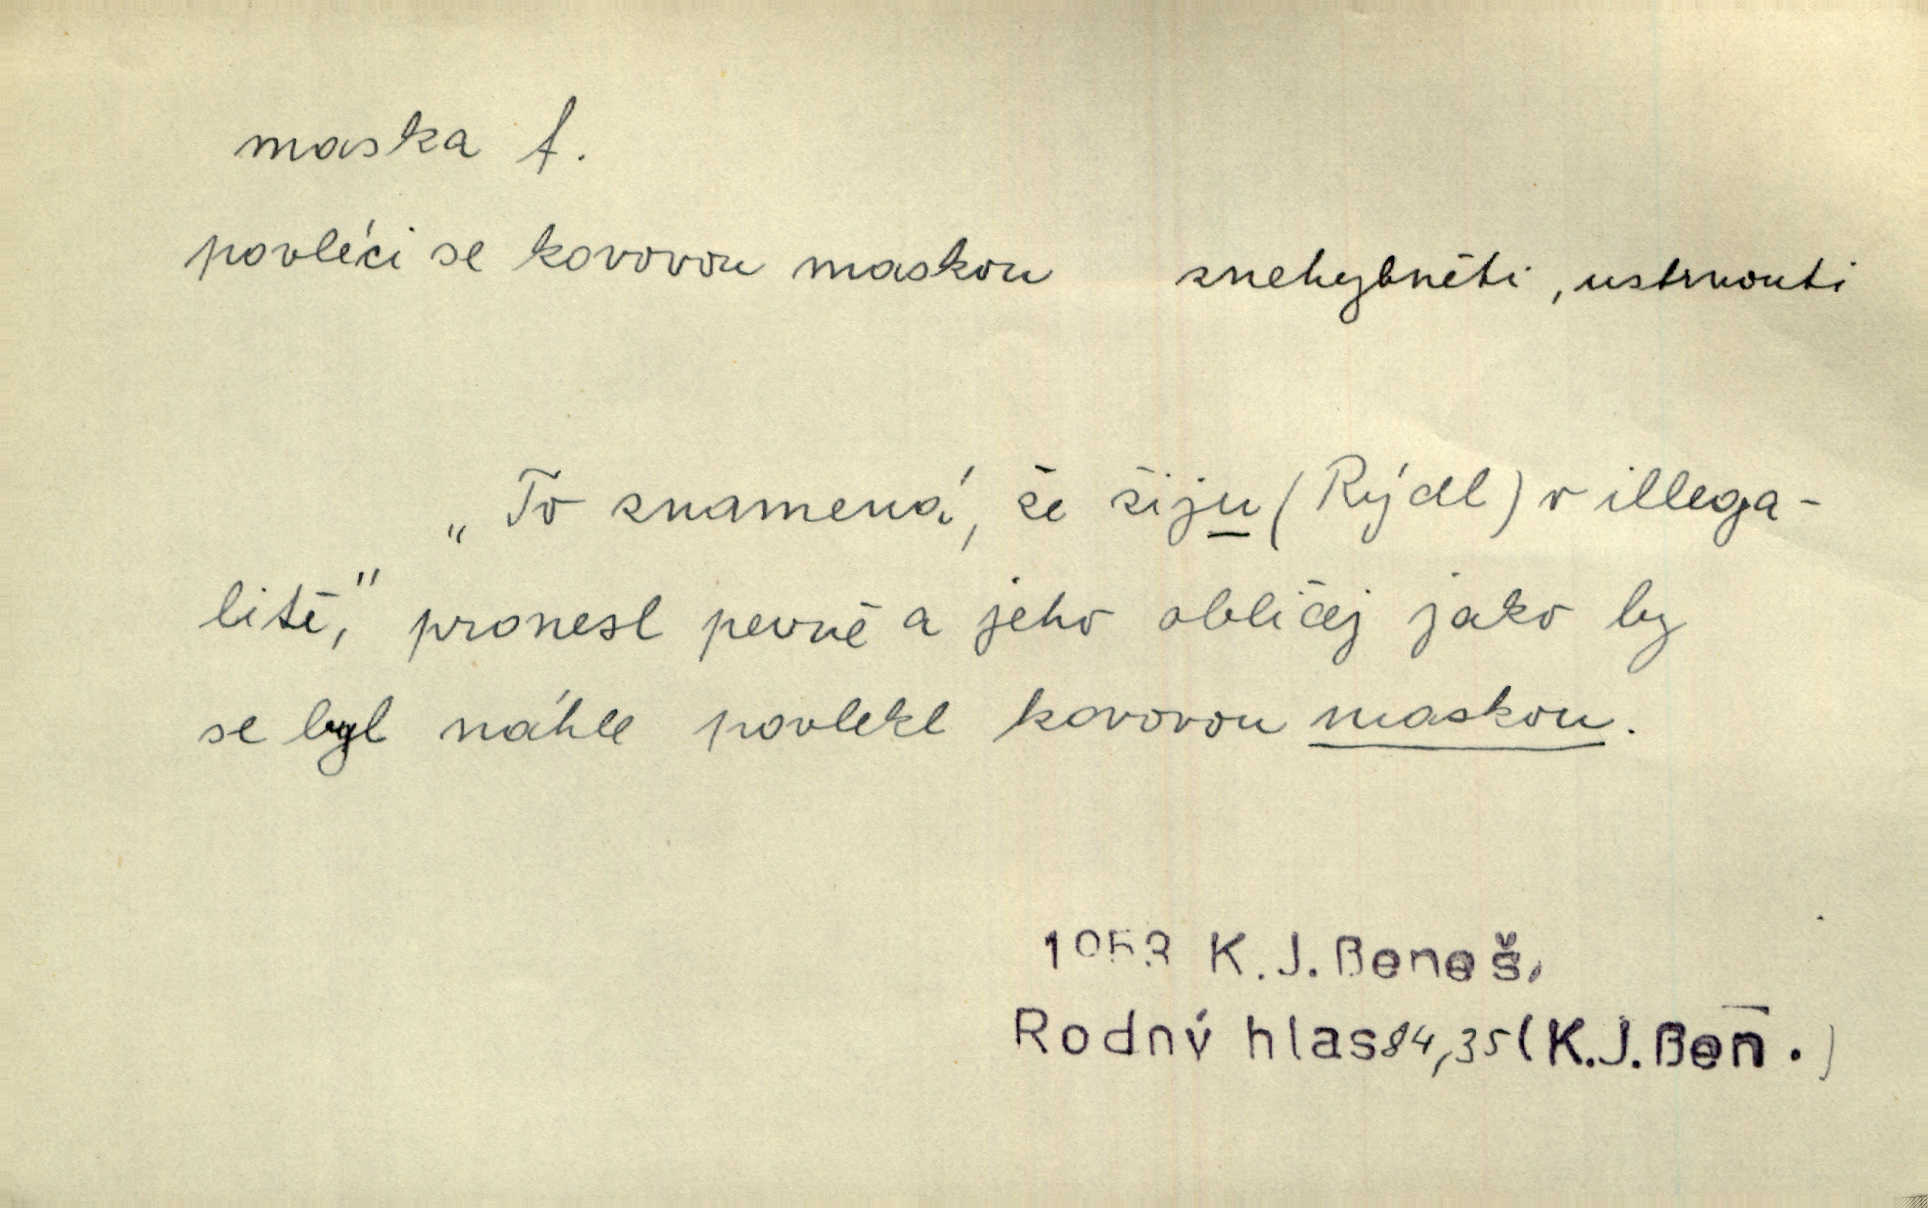 maska f.
povléci se kovovou maskou znehybněti, ustrnouti
„To znamená, že žiju (Rýdl) v illega-
litě," pronesl pevně a jeho obličej jako by
se byl náhle povlekl kovovou maskou.
1953 K.J.Beneš,
Rodný hlas 84,35 (K.J.Ben.)